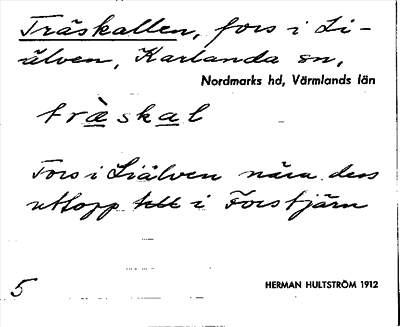 Träskallen, fors i Li-
älven, Karlanda sn,
Nordmarks hd, Värmlands län
træ̀skal
Fors i Liälven nära dess
utlopp tett i Forstjärn
5
HERMAN HULTSTRÖM 1912